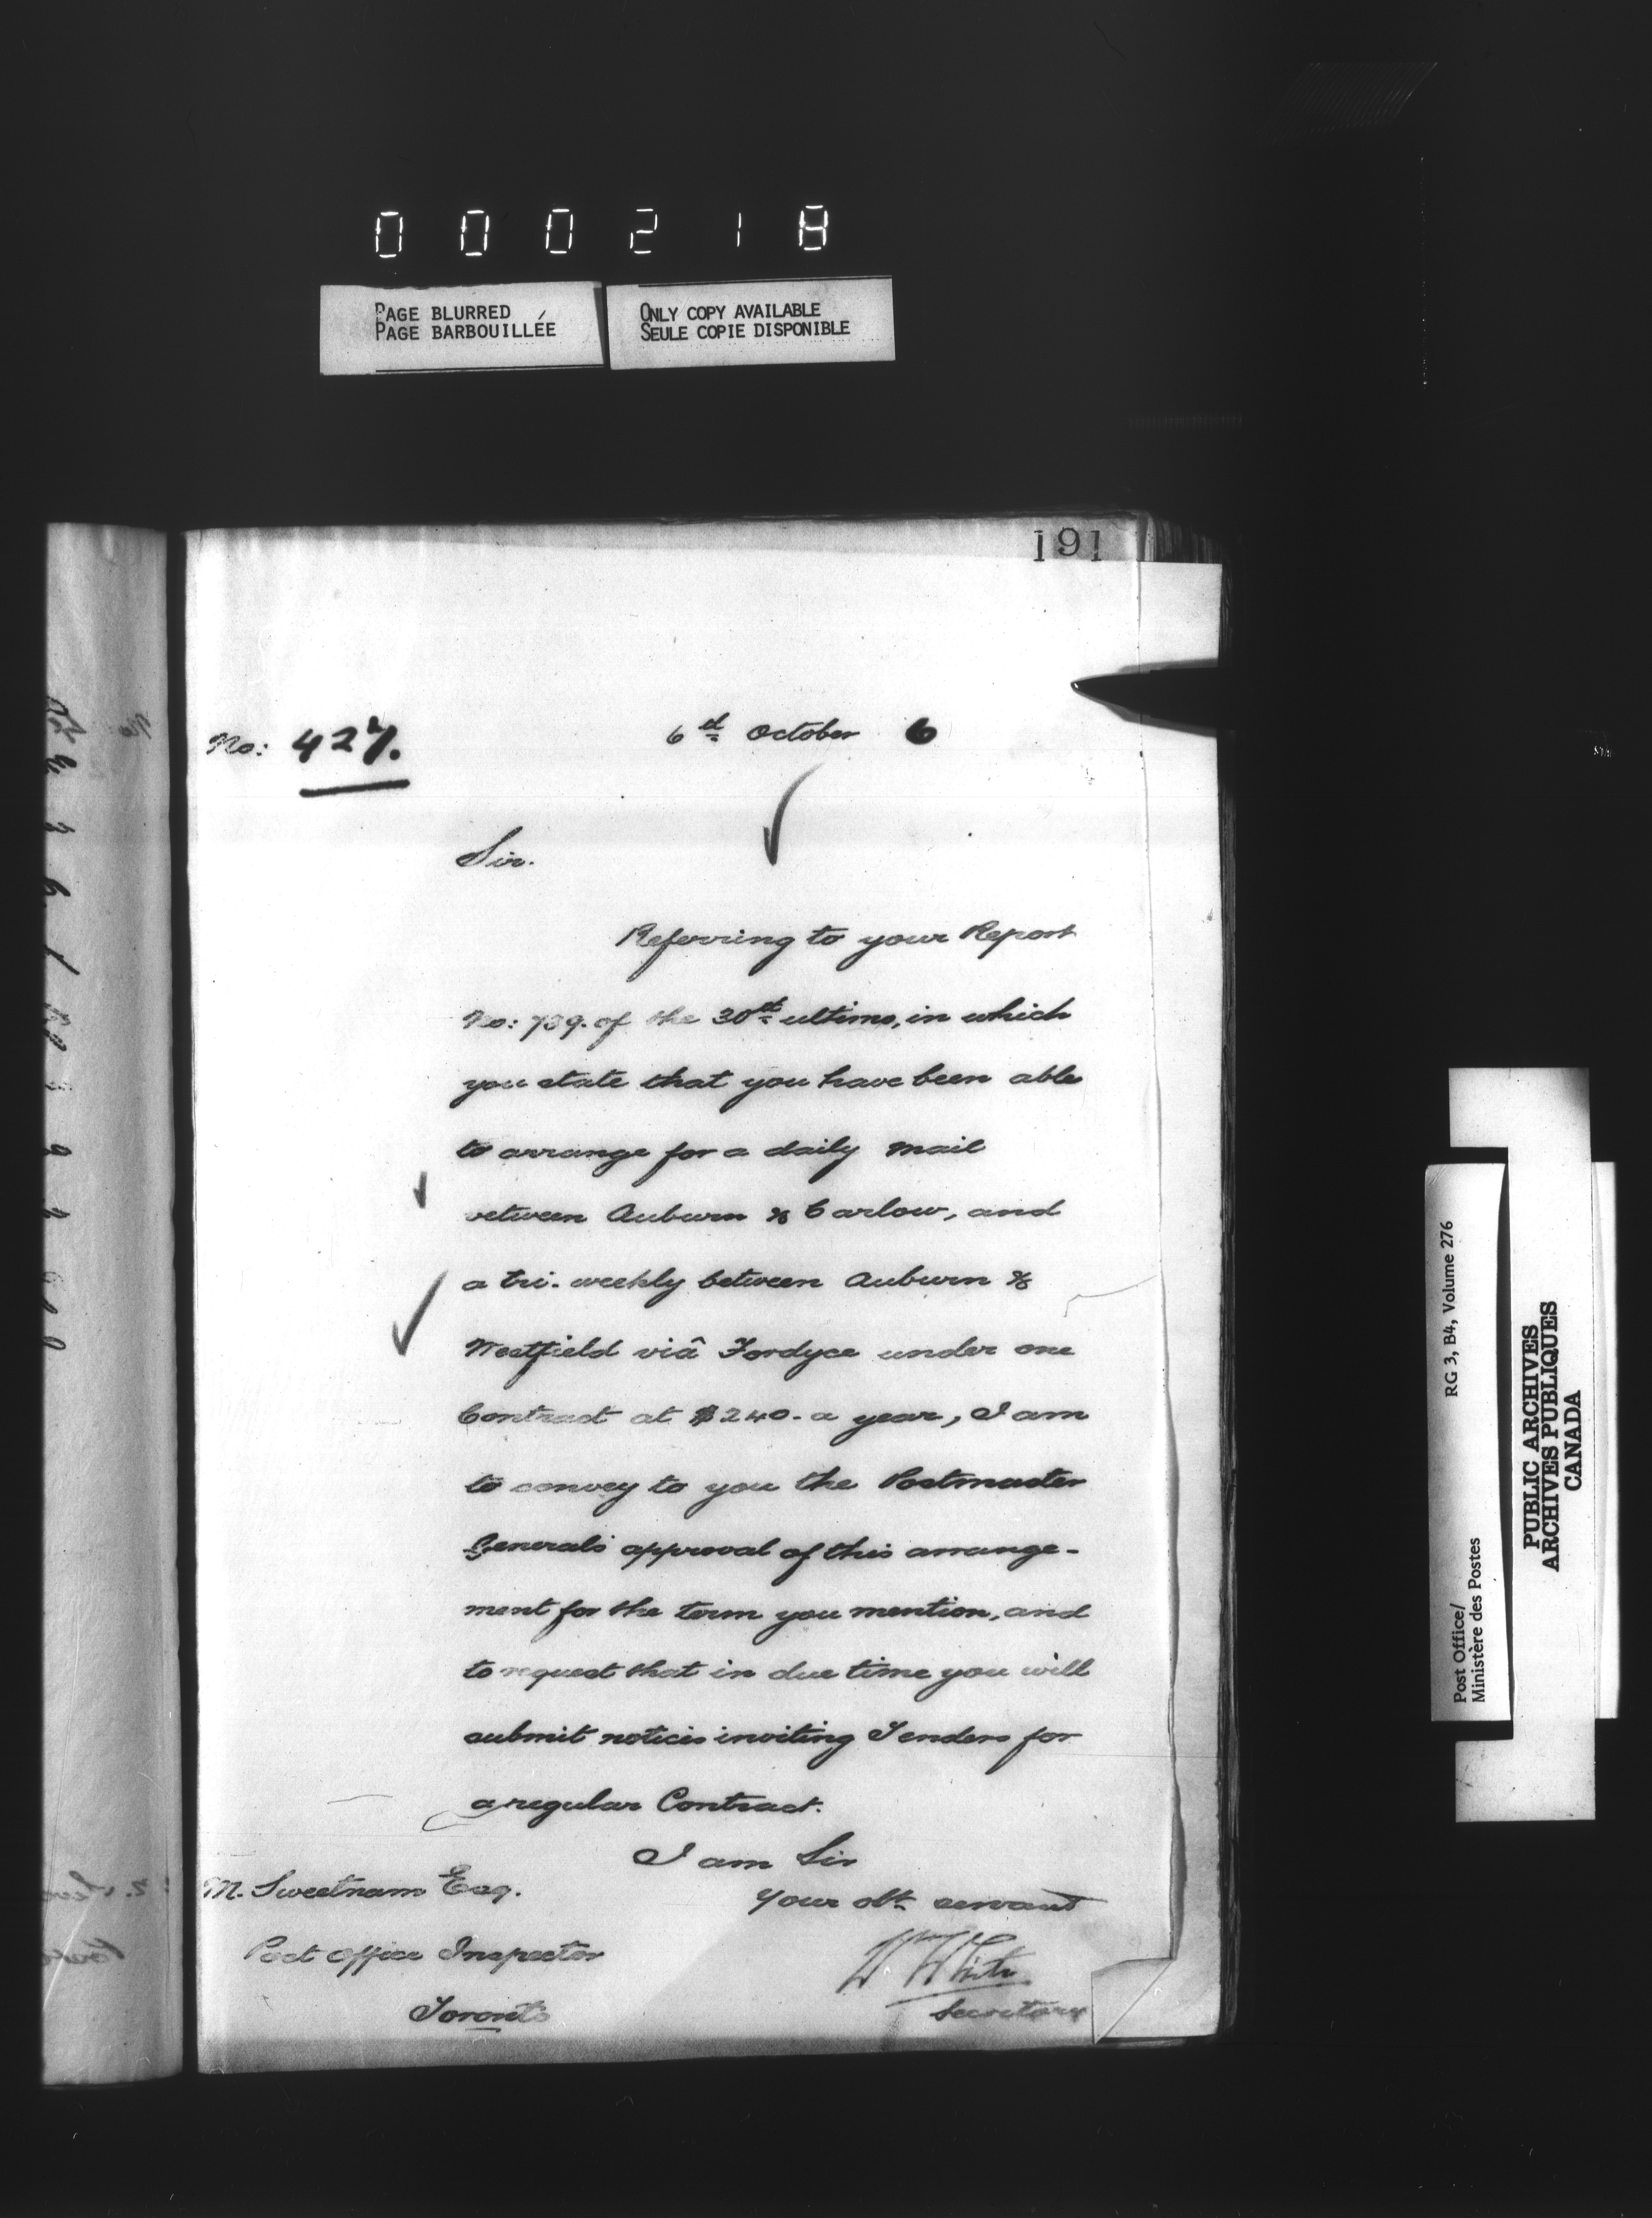 000218
PAGE BLURRED
PAGE BARBOUILLÉE
ONLY COPY AVAILABLE
SEULE COPIE DISPONIBLE
191
No: 427.
6th October 6
Sir.
Referring to your Report
No: 739. of the 30th ultimo, in which
you state that you have been able
to arrange for a daily mail
between Auburn & Carlow, and
a tri-weekly between Auburn &
Westfield viâ Fordyce under one
Contract at $240- a year, I am
to convey to you the Postmaster
General's approval of this arrange-
ment for the term you mention, and
to request that in due time you will
submit notices inviting Tenders for
a regular Contract.
I am Sir
Your obt. servant
Wm White
Secretary
M. Sweetnam Esq.
Post Office Inspector
Toronto
RG 3, B4, Volume 276
Post Office/
Ministère des Postes
PUBLIC ARCHIVES
ARCHIVES PUBLIQUES
CANADA